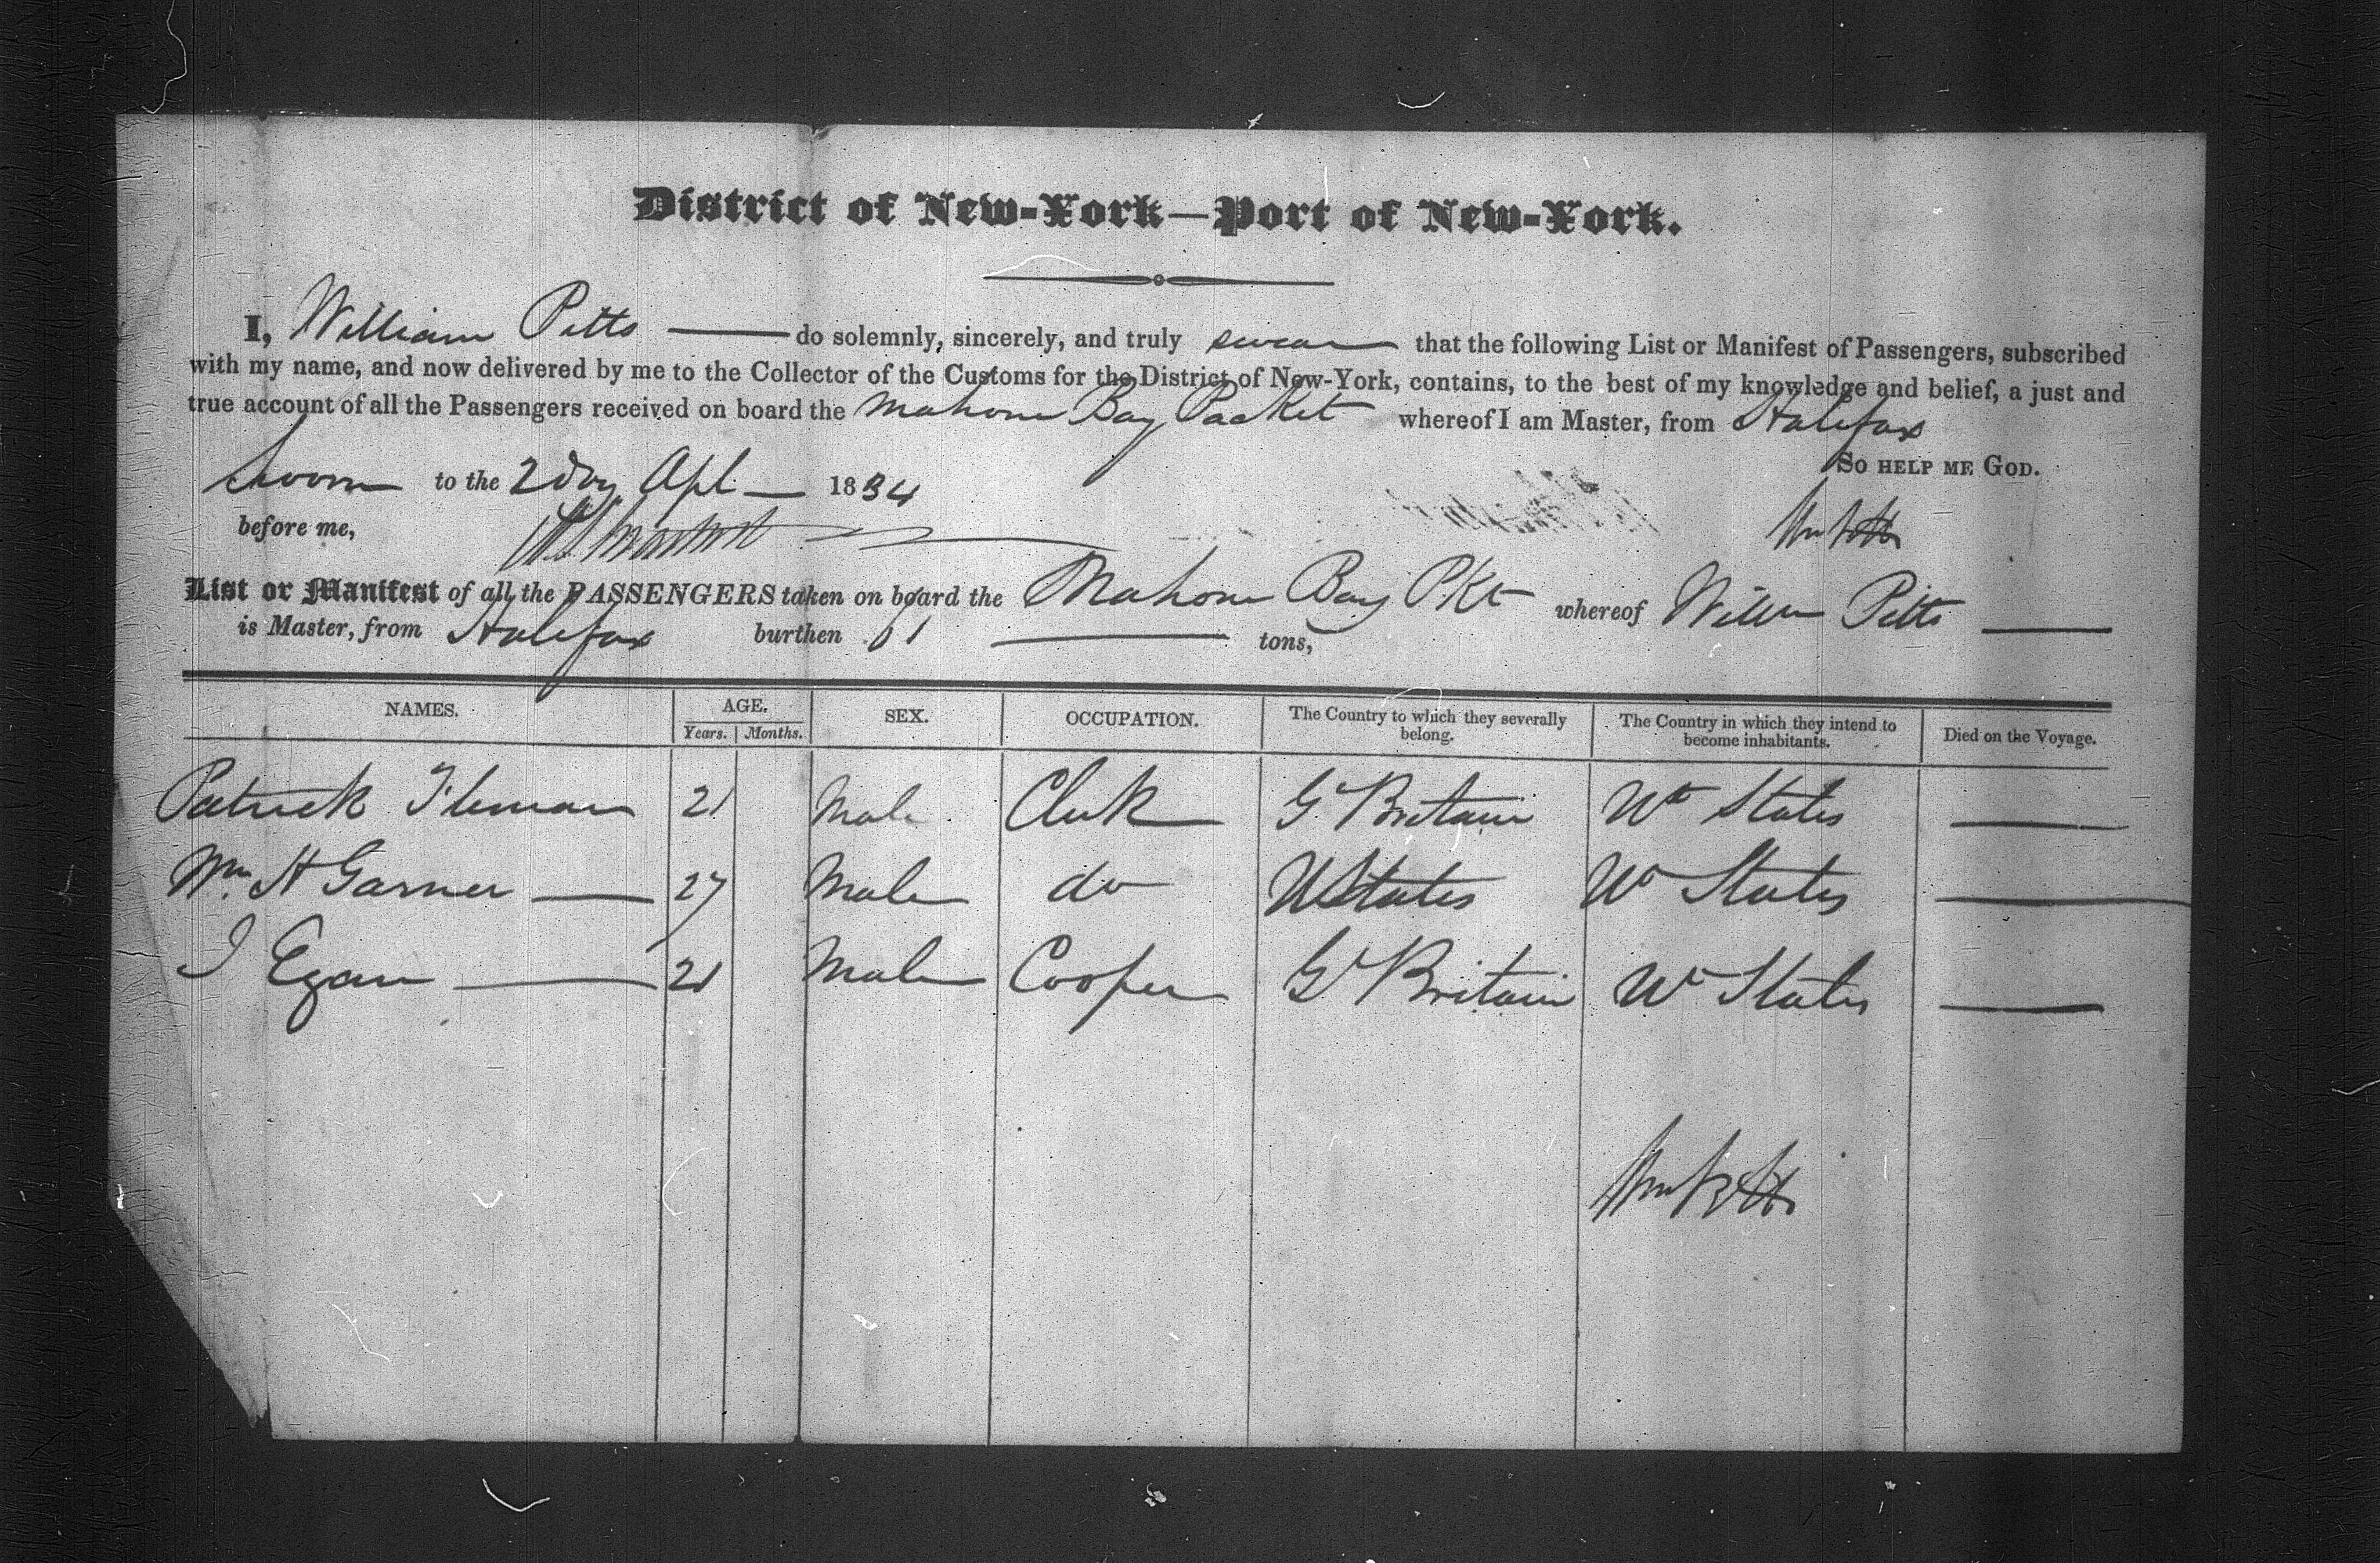 District of New-York—Port of New-York.
I, William Pitts — do solemnly, sincerely, and truly swear that the following List or Manifest of Passengers, subscribed
with my name, and now delivered by me to the Collector of the Customs for the District of New-York, contains, to the best of my knowledge and belief, a just and
true account of all the Passengers received on board the Mahone Bay Packet whereof I am Master, from Halifax
So help me God.
Sworn to the 2 day Apl — 1834
before me,
Wm Pitts
List or Manifest of all the PASSENGERS taken on board the Mahone Bay Pkt whereof Willm Pitts —
is Master, from Halifax burthen 61 — tons,
NAMES. AGE. SEX. OCCUPATION. The Country to which they severally belong. The Country in which they intend to become inhabitants. Died on the Voyage.
Years. Months.
Patrick Fleman 21 Male Clerk Gt Britain Ud States —
Wm. H Garner — 27 Male do UStates Ud States —
J Egan — 21 Male Cooper Gt Britain Ud States —
Wm Pitts